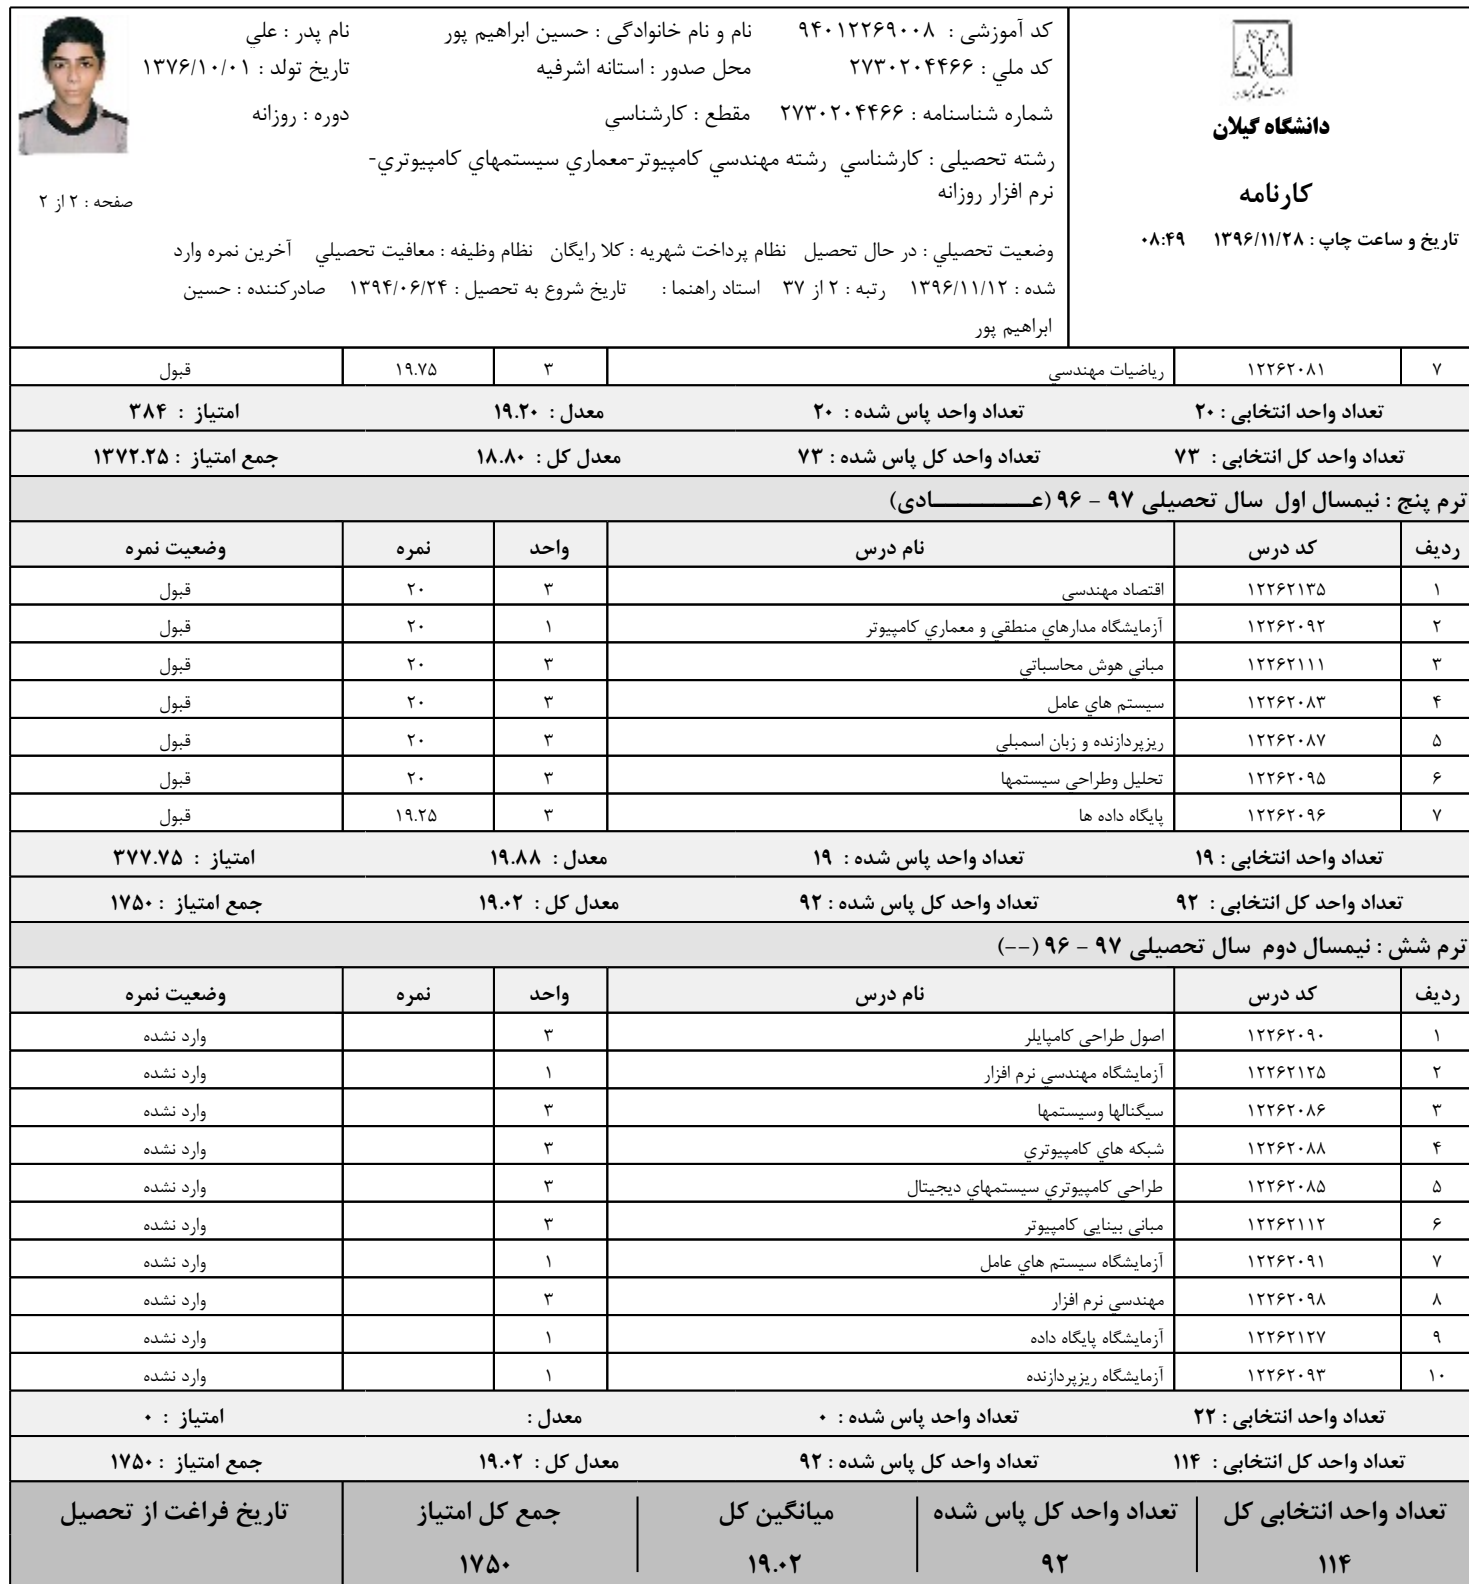 دانشگاه گیلان
کارنامه
تاریخ و ساعت چاپ : ۱۳۹۶/۱۱/۲۸ ۰۸:۴۹
کد آموزشی : ۹۴۰۱۲۲۶۹۰۰۸ نام و نام خانوادگی : حسین ابراهیم پور نام پدر : علي
کد ملي : ۲۷۳۰۲۰۴۴۶۶ محل صدور : استانه اشرفیه تاریخ تولد : ۱۳۷۶/۱۰/۰۱
شماره شناسنامه : ۲۷۳۰۲۰۴۴۶۶ مقطع : کارشناسي دوره : روزانه
رشته تحصیلی : کارشناسي رشته مهندسي کامپیوتر-معماري سیستمهاي کامپیوتري-
نرم افزار روزانه
صفحه : ۲ از ۲
وضعیت تحصیلي : در حال تحصیل نظام پرداخت شهریه : کلا رایگان نظام وظیفه : معافیت تحصیلي آخرین نمره وارد
شده : ۱۳۹۶/۱۱/۱۲ رتبه : ۲ از ۳۷ استاد راهنما : تاریخ شروع به تحصیل : ۱۳۹۴/۰۶/۲۴ صادرکننده : حسین
ابراهیم پور
۷ ۱۲۲۶۲۰۸۱ ریاضیات مهندسي ۳ ۱۹.۷۵ قبول
تعداد واحد انتخابی : ۲۰ تعداد واحد پاس شده : ۲۰ معدل : ۱۹.۲۰ امتیاز : ۳۸۴
تعداد واحد کل انتخابی : ۷۳ تعداد واحد کل پاس شده : ۷۳ معدل کل : ۱۸.۸۰ جمع امتیاز : ۱۳۷۲.۲۵
ترم پنج : نیمسال اول سال تحصیلی ۹۷ - ۹۶ (عـــــــــــادی)
ردیف کد درس نام درس واحد نمره وضعیت نمره
۱ ۱۲۲۶۲۱۳۵ اقتصاد مهندسي ۳ ۲۰ قبول
۲ ۱۲۲۶۲۰۹۲ آزمایشگاه مدارهاي منطقي و معماري کامپیوتر ۱ ۲۰ قبول
۳ ۱۲۲۶۲۱۱۱ مباني هوش محاسباتي ۳ ۲۰ قبول
۴ ۱۲۲۶۲۰۸۳ سیستم هاي عامل ۳ ۲۰ قبول
۵ ۱۲۲۶۲۰۸۷ ریزپردازنده و زبان اسمبلی ۳ ۲۰ قبول
۶ ۱۲۲۶۲۰۹۵ تحلیل وطراحی سیستمها ۳ ۲۰ قبول
۷ ۱۲۲۶۲۰۹۶ پایگاه داده ها ۳ ۱۹.۲۵ قبول
تعداد واحد انتخابی : ۱۹ تعداد واحد پاس شده : ۱۹ معدل : ۱۹.۸۸ امتیاز : ۳۷۷.۷۵
تعداد واحد کل انتخابی : ۹۲ تعداد واحد کل پاس شده : ۹۲ معدل کل : ۱۹.۰۲ جمع امتیاز : ۱۷۵۰
ترم شش : نیمسال دوم سال تحصیلی ۹۷ - ۹۶ (--)
ردیف کد درس نام درس واحد نمره وضعیت نمره
۱ ۱۲۲۶۲۰۹۰ اصول طراحی کامپایلر ۳ وارد نشده
۲ ۱۲۲۶۲۱۲۵ آزمایشگاه مهندسي نرم افزار ۱ وارد نشده
۳ ۱۲۲۶۲۰۸۶ سیگنالها وسیستمها ۳ وارد نشده
۴ ۱۲۲۶۲۰۸۸ شبکه هاي کامپیوتري ۳ وارد نشده
۵ ۱۲۲۶۲۰۸۵ طراحی کامپیوتري سیستمهاي دیجیتال ۳ وارد نشده
۶ ۱۲۲۶۲۱۱۲ مبانی بینایی کامپیوتر ۳ وارد نشده
۷ ۱۲۲۶۲۰۹۱ آزمایشگاه سیستم هاي عامل ۱ وارد نشده
۸ ۱۲۲۶۲۰۹۸ مهندسي نرم افزار ۳ وارد نشده
۹ ۱۲۲۶۲۱۲۷ آزمایشگاه پایگاه داده ۱ وارد نشده
۱۰ ۱۲۲۶۲۰۹۳ آزمایشگاه ریزپردازنده ۱ وارد نشده
تعداد واحد انتخابی : ۲۲ تعداد واحد پاس شده : ۰ معدل : امتیاز : ۰
تعداد واحد کل انتخابی : ۱۱۴ تعداد واحد کل پاس شده : ۹۲ معدل کل : ۱۹.۰۲ جمع امتیاز : ۱۷۵۰
تعداد واحد انتخابی کل تعداد واحد کل پاس شده میانگین کل جمع کل امتیاز تاریخ فراغت از تحصیل
۱۱۴ ۹۲ ۱۹.۰۲ ۱۷۵۰